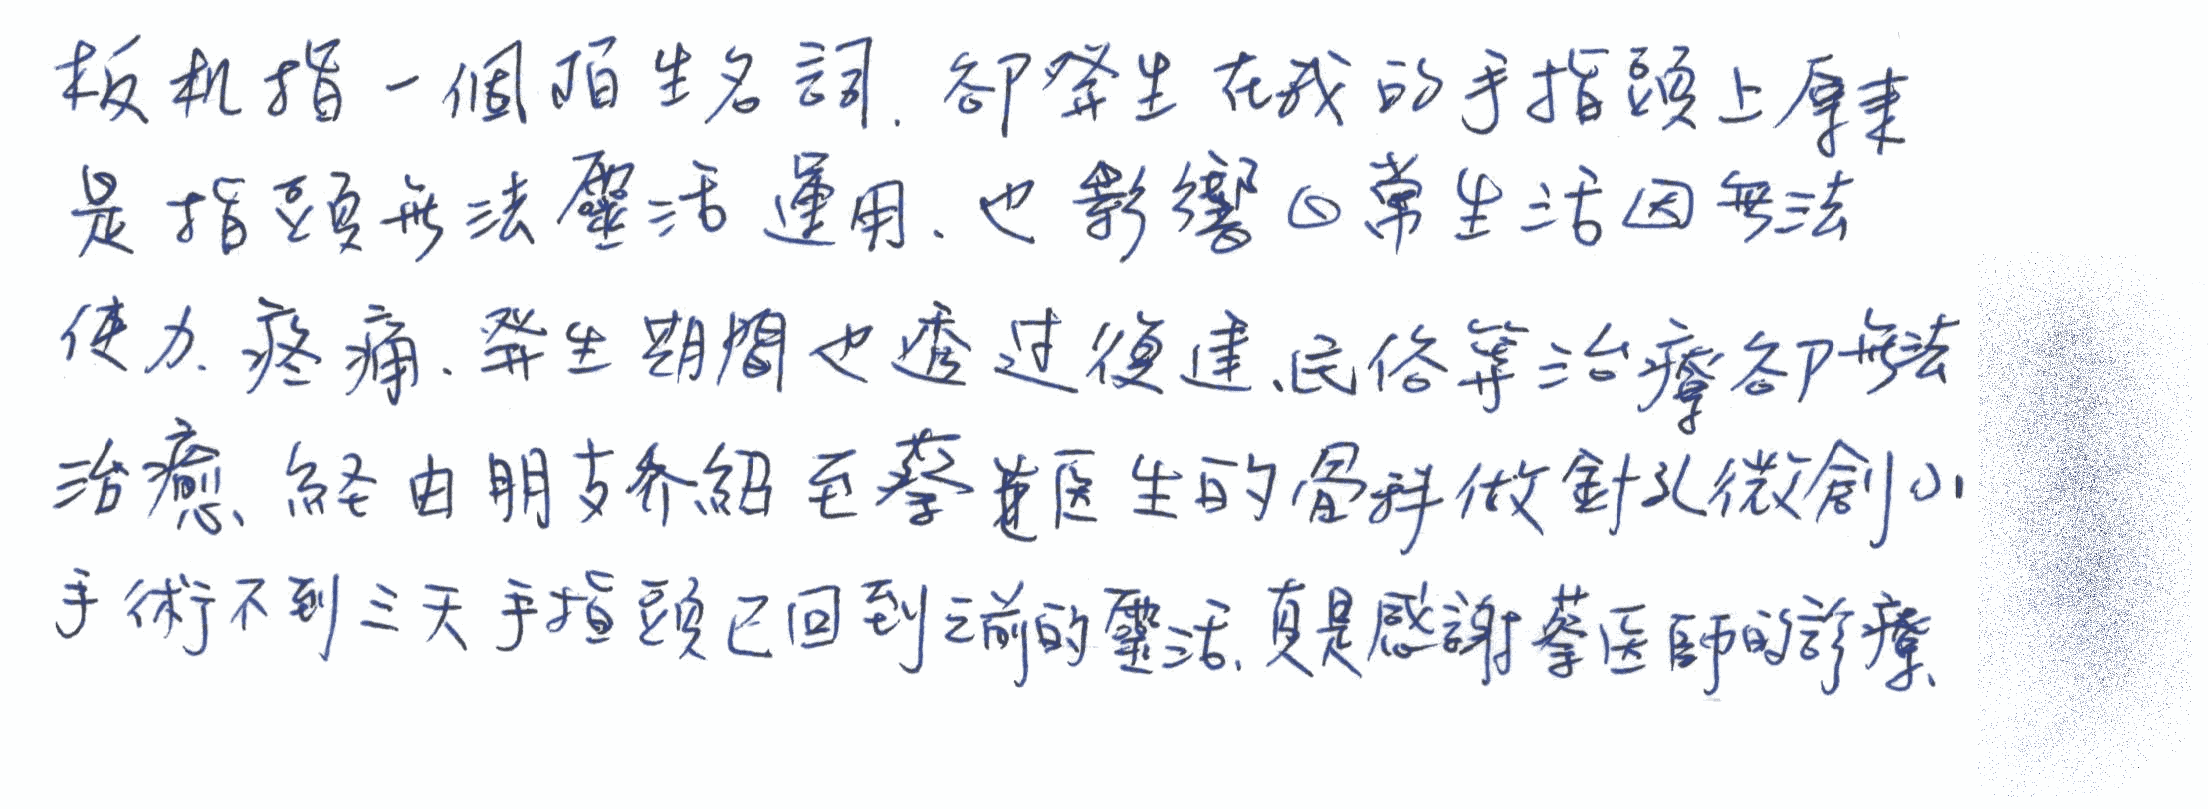 板机指一個陌生名詞.卻發生在我的手指頭上原來
是指頭無法靈活運用、也影響日常生活因無法
使力、疼痛、發生期間也透过復建、民俗等治療卻無法
治癒、経由朋友介紹至蔡医生的骨科做針孔微創小
手術不到三天手指頭已回到之前的靈活、真是感謝蔡医師的診療、